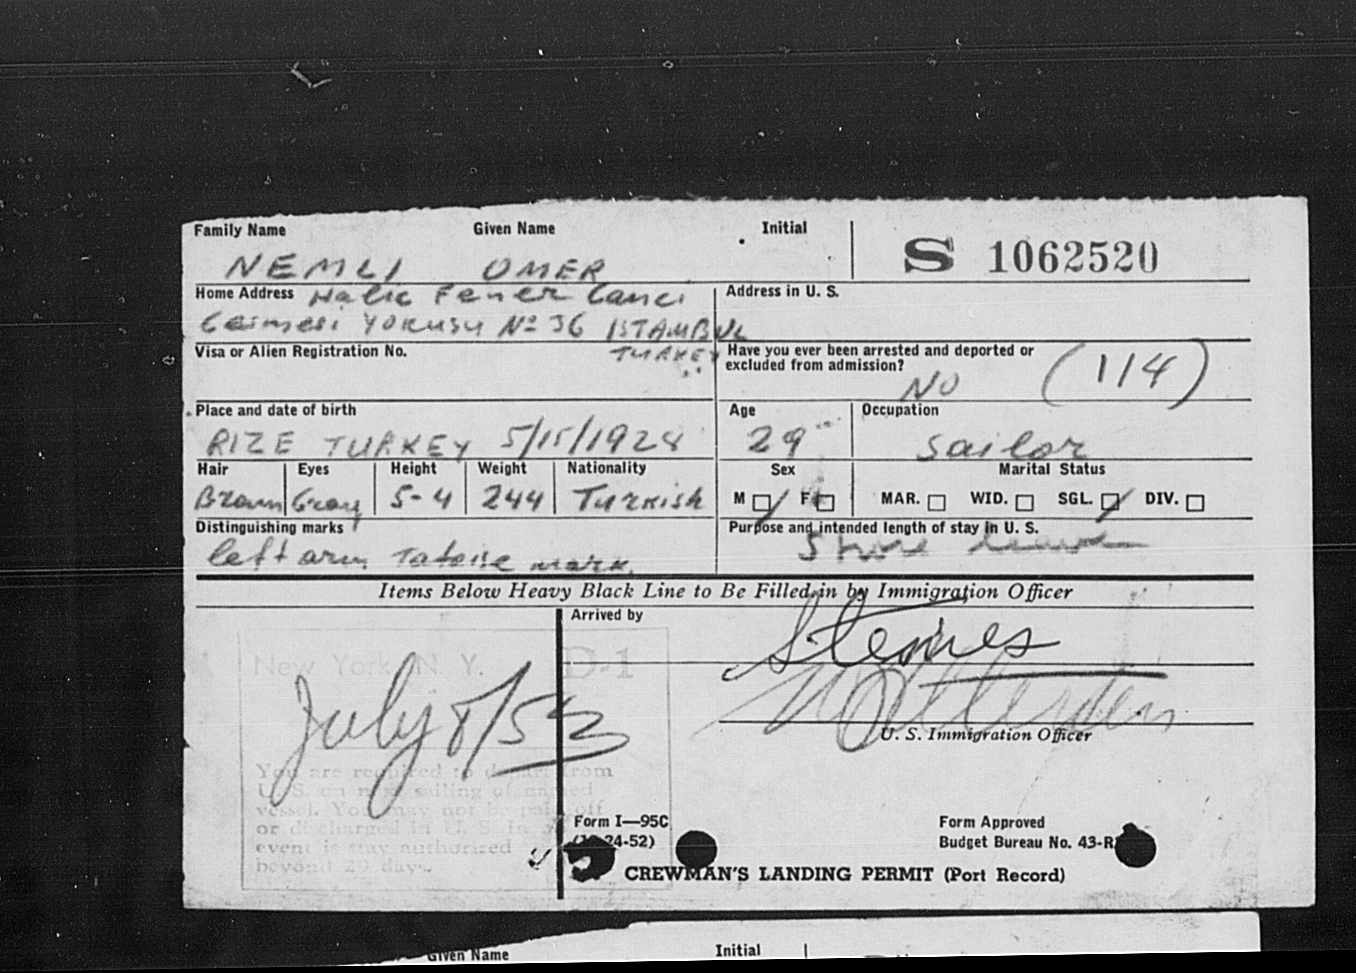 Family Name Given Name Initial
NEMLI OMER
S 1062520
Home Address Halic Fener Address in U. S.
YOKUSU Nº 36 ISTAMBUL
TURKEY
Visa or Alien Registration No.
Have you ever been arrested and deported or
excluded from admission?
NO (114)
Place and date of birth Age Occupation
RIZE TURKEY 5/15/1924 29 Sailor
Hair Eyes Height Weight Nationality Sex Marital Status
Brown Gray 5-4 244 Turkish
M F MAR. WID. SGL. DIV.
Distinguishing marks Purpose and intended length of stay in U. S.
left arm mark. Shore
Items Below Heavy Black Line to Be Filled in by Immigration Officer
Arrived by
New York, N. Y. D-1
July 8/53
U. S. Immigration Officer
You are required to depart from
U. S. on sailing of named
vessel. You may not be paid off
or discharged in U. S. In
event is stay authorized
beyond 29 days.
Form I—95C
24-52)
Form Approved
Budget Bureau No. 43-R
CREWMAN'S LANDING PERMIT (Port Record)
Given Name Initial